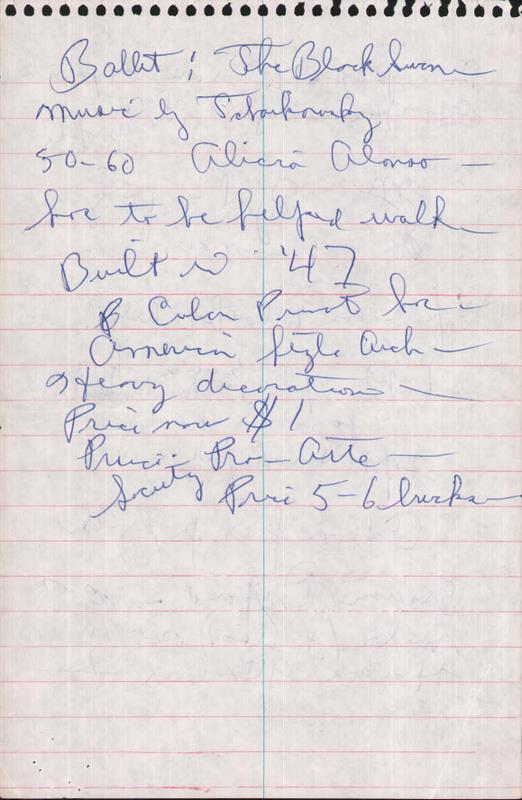 Ballet; The Black Swan
music by Tchaikovsky
50-60 Alicia Alonso —
has to be helped walk
Built in '47
Cuban Private
American style Arch —
Heavy decoration —
Price now $1
Pro-Arte —
Society Price 5-6 bucks —